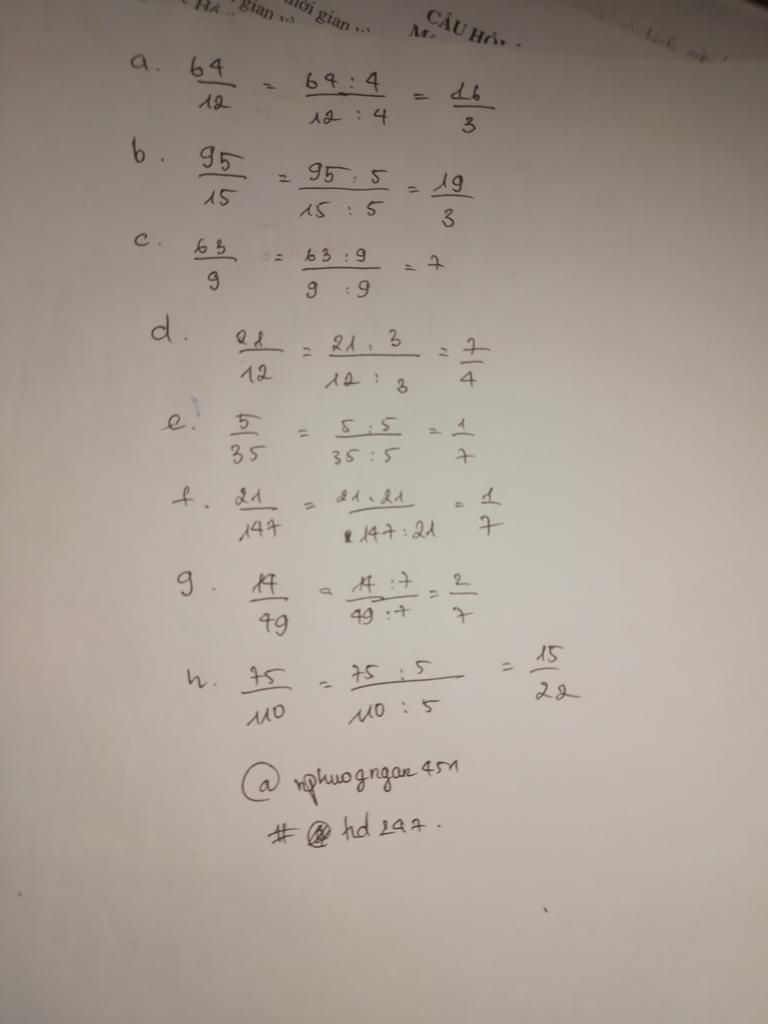 CÂU HỎI
a. 64/12 = 64 : 4/12 : 4 = 16/3
b. 95/15 = 95 : 5/15 : 5 = 19/3
c. 63/9 = 63 : 9/9 : 9 = 7
d. 21/12 = 21 : 3/12 : 3 = 7/4
e. 5/35 = 5 : 5/35 : 5 = 1/7
f. 21/147 = 21 : 21/147 : 21 = 1/7
g. 14/49 = 14 : 7/49 : 7 = 2/7
h. 75/110 = 75 : 5/110 : 5 = 15/22
@ nphuogngan451
# hd 247.